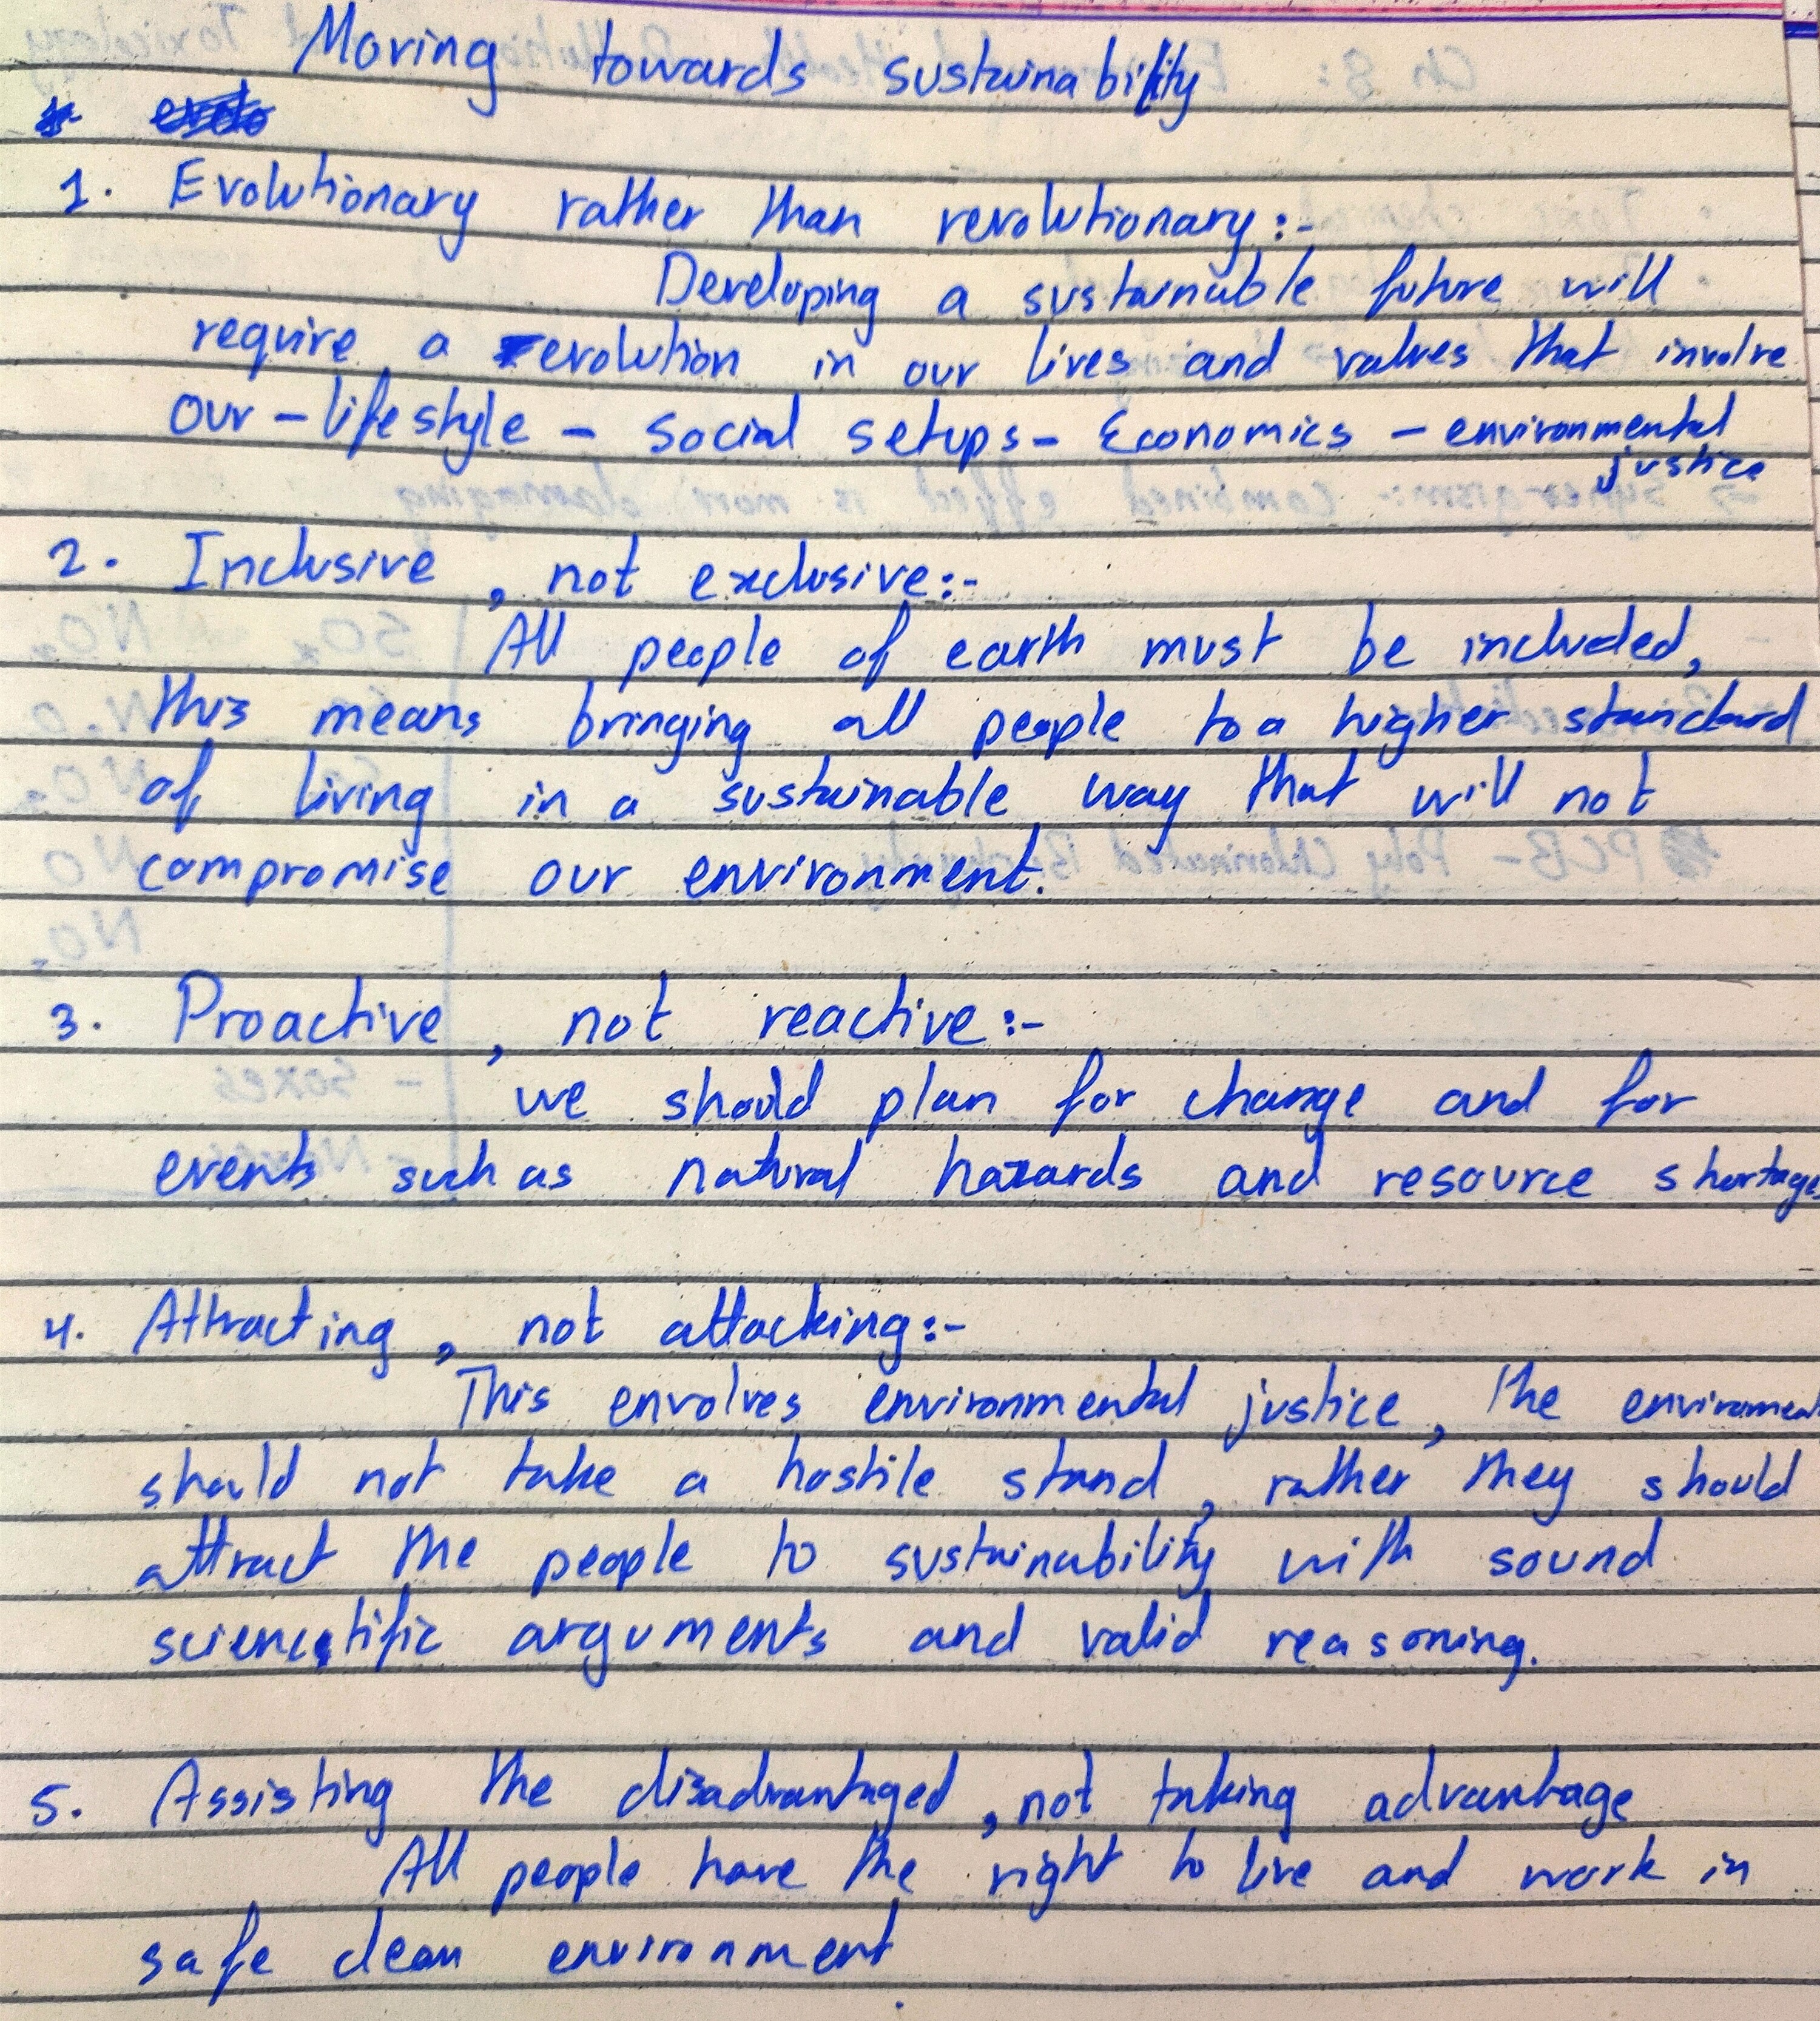 Moving towards sustainability
1. Evolutionary rather than revolutionary:-
Developing a sustainable future will
require a evolution in our lives and values that involve
our - lifestyle - Social setups - Economics - environmental
justice
2. Inclusive, not exclusive:-
All people of earth must be included,
this means bringing all people to a higher standard
of living in a sustainable way that will not
compromise our environment.
3. Proactive, not reactive:-
we should plan for change and for
events such as natural hazards and resource shortage
4. Attracting, not attacking:-
This envolves environmental justice, the environment
should not take a hostile stand, rather they should
attract the people to sustainability with sound
scientific arguments and valid reasoning.
5. Assisting the disadvantaged, not taking advantage
All people have the right to live and work in
safe clean environment.